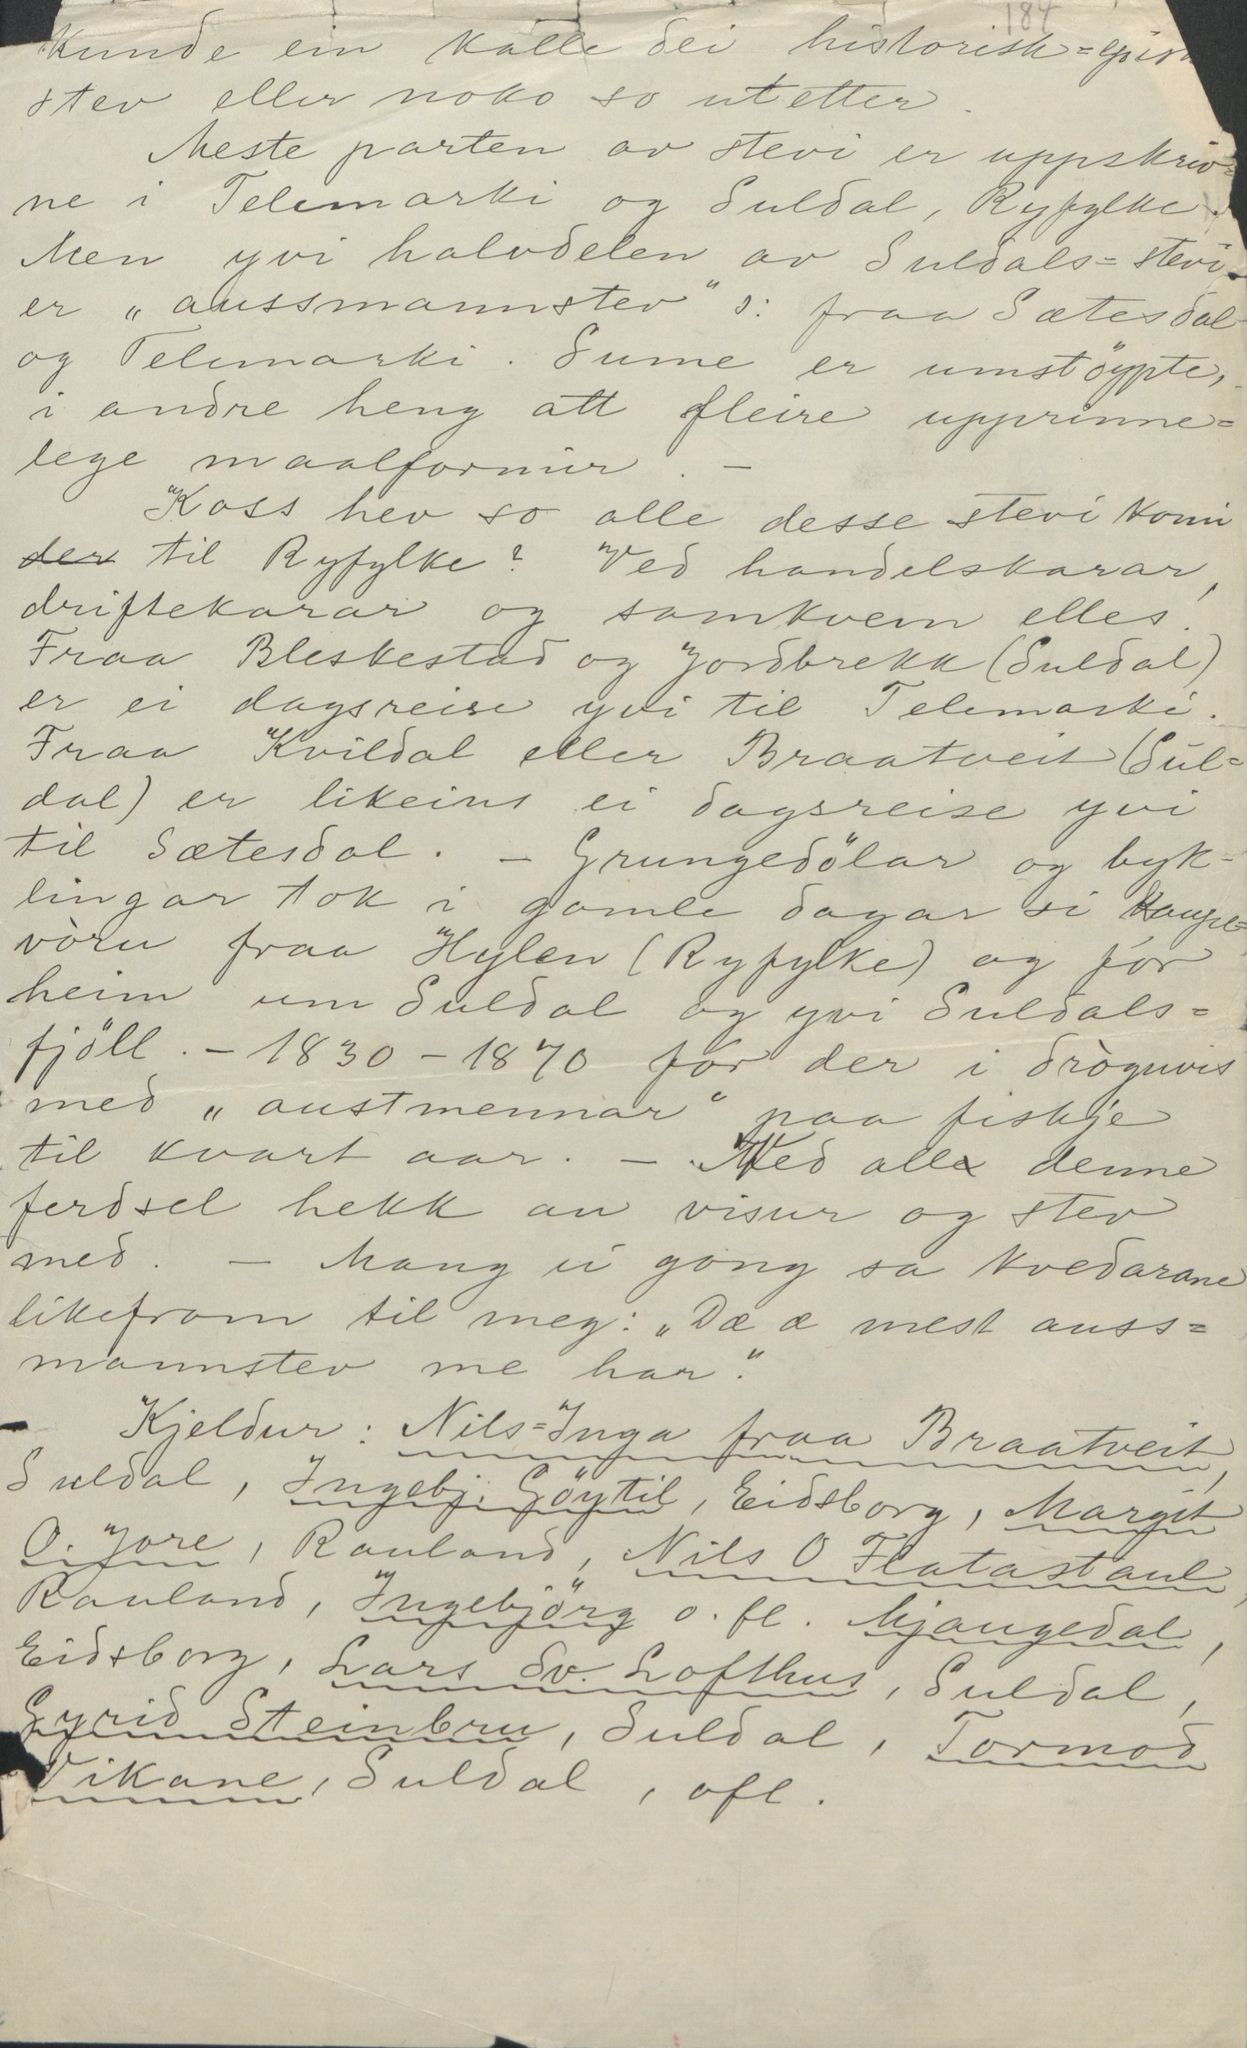 184
kunde ein kalle dei historisk=
stev eller noko so utetter.
Meste parten av stevi er uppskriv=
ne i Telemarki og Suldal, Ryfylke.
Men yvi halvdelen av Suldals=stevi
er „aussmannstev" ɔ: fraa Sætesdal
og Telemarki. Sume er umstöypte,
i andre heng att fleire upprinne=
lege maalformir. –
Koss hev so alle desse stevi komi
der til Ryfylke? Ved handelskarar,
driftekarar og samkvem elles.
Fraa Bleskestad og Jordbrekk (Suldal)
er ei dagsreise yvi til Telemarki.
Fraa Kvildal eller Braatveit (Sul=
dal) er likeins ei dagsreise yvi
til Sætesdal. – Grungedölar og byk=
lingar tok i gamle dagar si kaupe=
vòru fraa Hylen (Ryfylke) og fór
heim um Suldal og yvi Suldals=
fjöll. – 1830 – 1870 fór der i dròguvis
med „austmennar" paa fiskje
til kvart aar. – Med all denne
ferdsel hekk au visur og stev
med. – Mang ei gong sa kvedarane
likefram til meg: „Dæ æ mest auss=
mannstev me har."
Kjeldur: Nils=Inga fraa Braatveit,
Suldal, Ingebj. Göytil, Eidsborg, Margit
O. Jore, Rauland, Nils O Flatastaul,
Rauland, Ingebjörg o. fl. Mjaugedal,
Eidsborg, Lars Sv. Lofthus, Suldal,
Gyrid Steinbru, Suldal, Tormod
Vikane, Suldal, ofl.